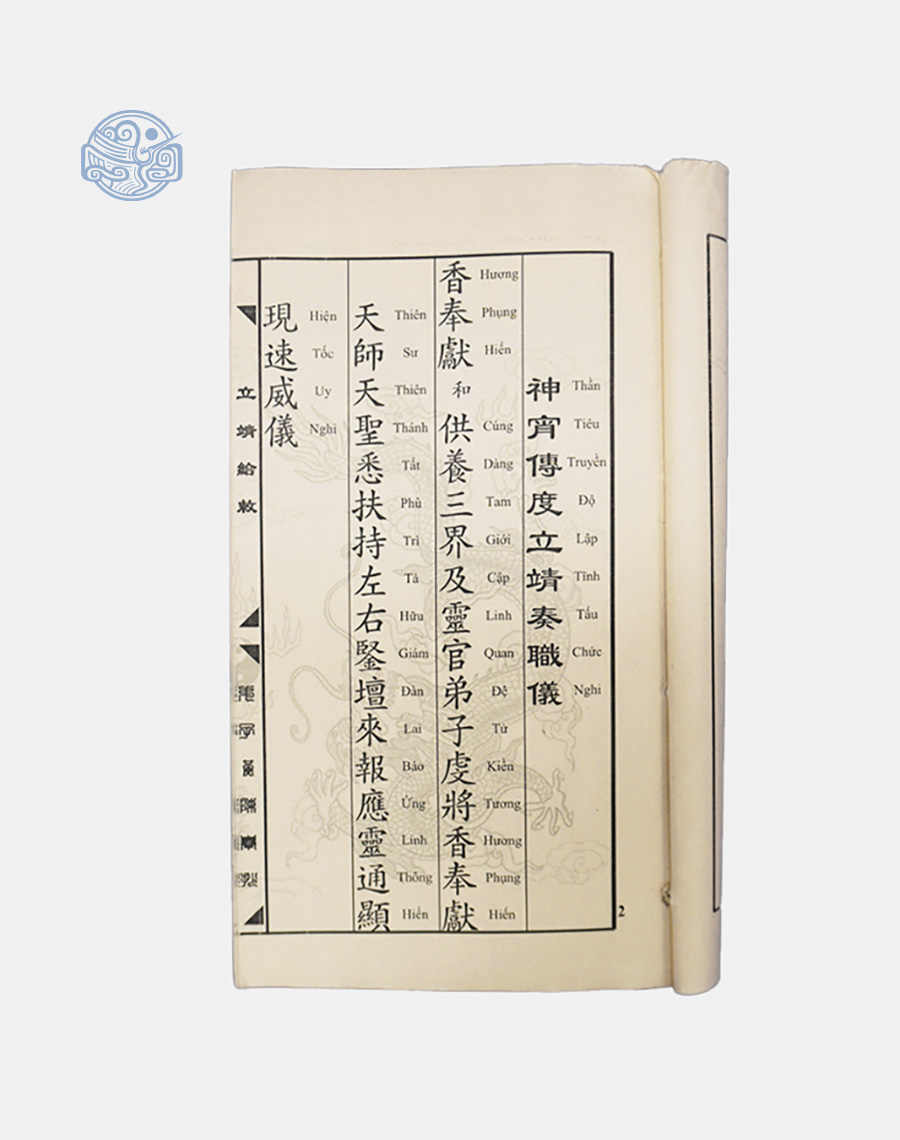 神宵傳度立靖奏職儀
Thần Tiêu Truyền Độ Lập Tĩnh Tấu Chức Nghi
香奉獻和供養三界及靈官弟子虔將香奉獻
Hương Phụng Hiến Cúng Dàng Tam Giới Cập Linh Quan Đệ Tử Kiền Tương Hường Phụng Hiến
天師天聖悉扶持左右鋻壇來報應靈通顯
Thiên Sư Thiên Thánh Tất Phù Trì Tả Hữu Giám Đàn Lai Báo Ứng Linh Thông Hiển
現速威儀
Hiện Tốc Uy Nghi
立靖給敕
2